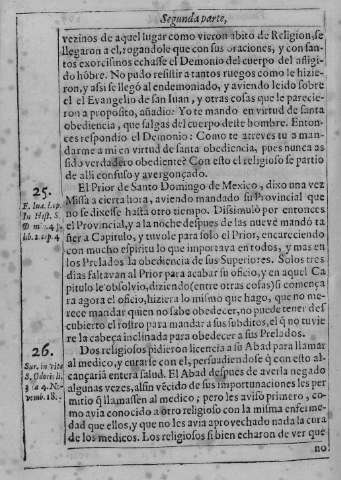 Segunda parte,
vezinos de aquel lugar como vieron abito de Religion, se
llegaron a el, rogandole que con sus oraciones, y con san-
tos exorcismos echasse el Demonio del cuerpo del afligi-
do hõbre. No pudo resistir a tantos ruegos como le hizie-
ron, y assi se llegò al endemoniado, y aviendo leido sobre
el el Evangelio de san Iuan, y otras cosas que le parecie-
ron a proposito, añadio: Yo te mando en virtud de santa
obediencia, que salgas del cuerpo deste hombre. Enton-
ces respondio el Demonio: Como te atreves tu a man-
darme a mi en virtud de santa obediencia, pues nunca as
sido verdadero obediente? Con esto el religioso se partio
de alli confuso y avergonçado.
25.
El Prior de Santo Domingo de Mexico, dixo una vez
Missa a cierta hora, aviendo mandado su Provincial que
no se dixesse hasta otro tiempo. Dissimulò por entonces
el Provincial, y a la noche despues de las nueve mandò ta
ñer a Capitulo, y tuvole para solo el Prior, encareciendo
con mucho espiritu lo que importava en todos, y mas en
los Prelados la obediencia de sus Superiores. Solos tres
dias faltavan al Prior para acabar su oficio, y en aquel Ca
pitulo le obsolvio, diziendo (entre otras cosas) si comença
ra agora el oficio, hiziera lo mismo que hago, que no me-
rece mandar quien no sabe obedecer, no puede tener des
cubierto el rostro para mandar a sus subditos, el q̃ no tuvie
re la cabeça inclinada para obedecer a sus Prelados.
26.
Dos religiosos pidieron licencia a su Abad para llamar
al medico, y curarse con el, persuadiendose q̃ con esto al-
cançaria entera salud. El Abad despues de averla negado
algunas vezes, al fin vẽcido de sus importunaciones les per
mitio q̃ llamassen al medico; pero les avisò primero, co-
mo avia conocido a otro religioso con la misma enferme-
dad que ellos, y que no les avia aprovechado nada la cura
de los medicos. Los religiosos si bien echaron de ver que
no